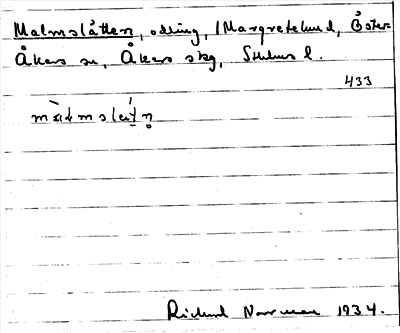 Malmslåtten, odling, (Margretelund, Öster-
Åkers sn, Åkers skg, Sthlms l.
433
Rickard Norrman 1934.